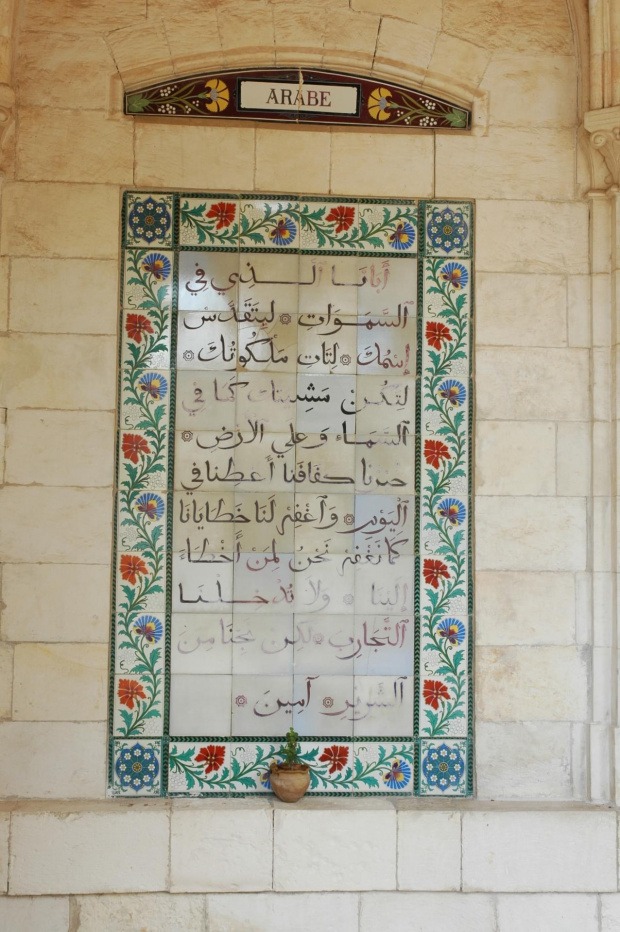 ARABE
أَبَانَا ٱلَّذِي فِي
ٱلسَّمَـوَاتِ ۞ لِيَتَقَدَّسْ
إِسْمُكَ ۞ لِتَاتِ مَلَكُوتُكَ ۞
لِتَكُنْ مَشِيئَتُكَ كَمَا فِي
ٱلسَّمَـاءِ وَعَلَى الأرْضِ ۞
خُبْزَنا كفافَنا أَعطِنا في
ٱلْيَوْمِ ۞ وَٱغْفِرْ لَنَا خَطَايَانَا
كَمَا نَغْفِرْ نَحْنُ لِمَنْ أَخْطَاءَ
إِلَيْنَا ۞ ولا تُدْخِـلْـنَـا
ٱلتَّجَارِبِ ۞ لكِن نجِّنَا مِنَ
ٱلشِّرِّيرِ ۞ آمِينَ ۞